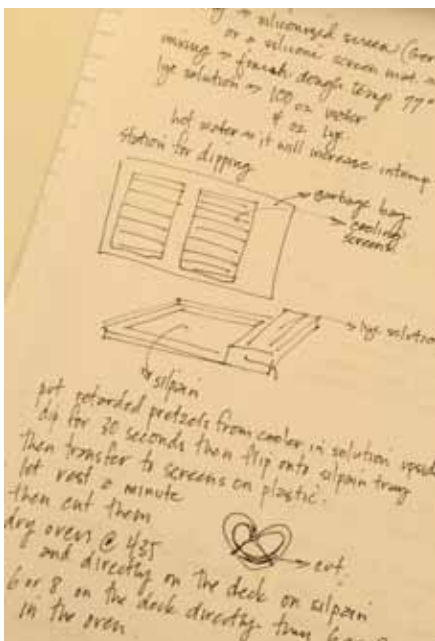 siliconized screen
or a silicone screen mat
mixing → finish dough temp 77°
lye solution → 100 oz water
4 oz lye
hot water → it will increase in temp
station for dipping
→ garbage bag
→ cooling
screens
→ lye solution
silpain
put retarded pretzels from cooler in solution upside
dip for 30 seconds then flip onto silpain tray
then transfer to screens on plastic.
let rest a minute
then cut them
→ cut
dry ovens @ 435
and directly on the deck on silpain
6 or 8 on the deck directly
in the oven